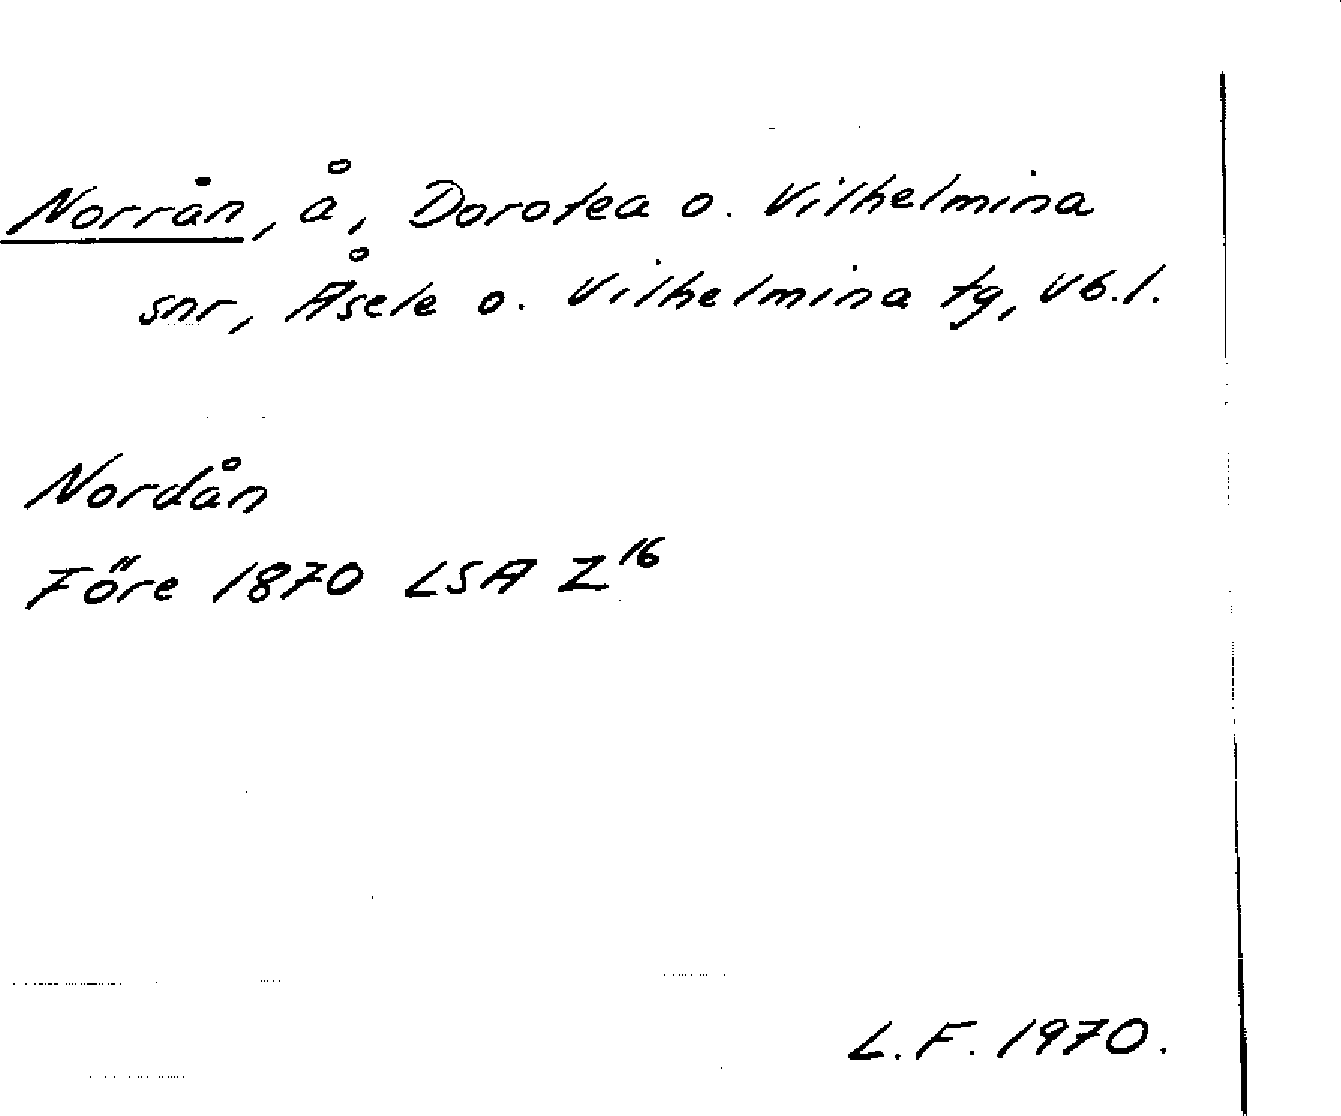 Norrån, å, Dorotea o. Vilhelmina
snr, Åsele o. Vilhelmina tg, Vb.l.
Nordån
Före 1870 LSA Z16
L.F. 1970.